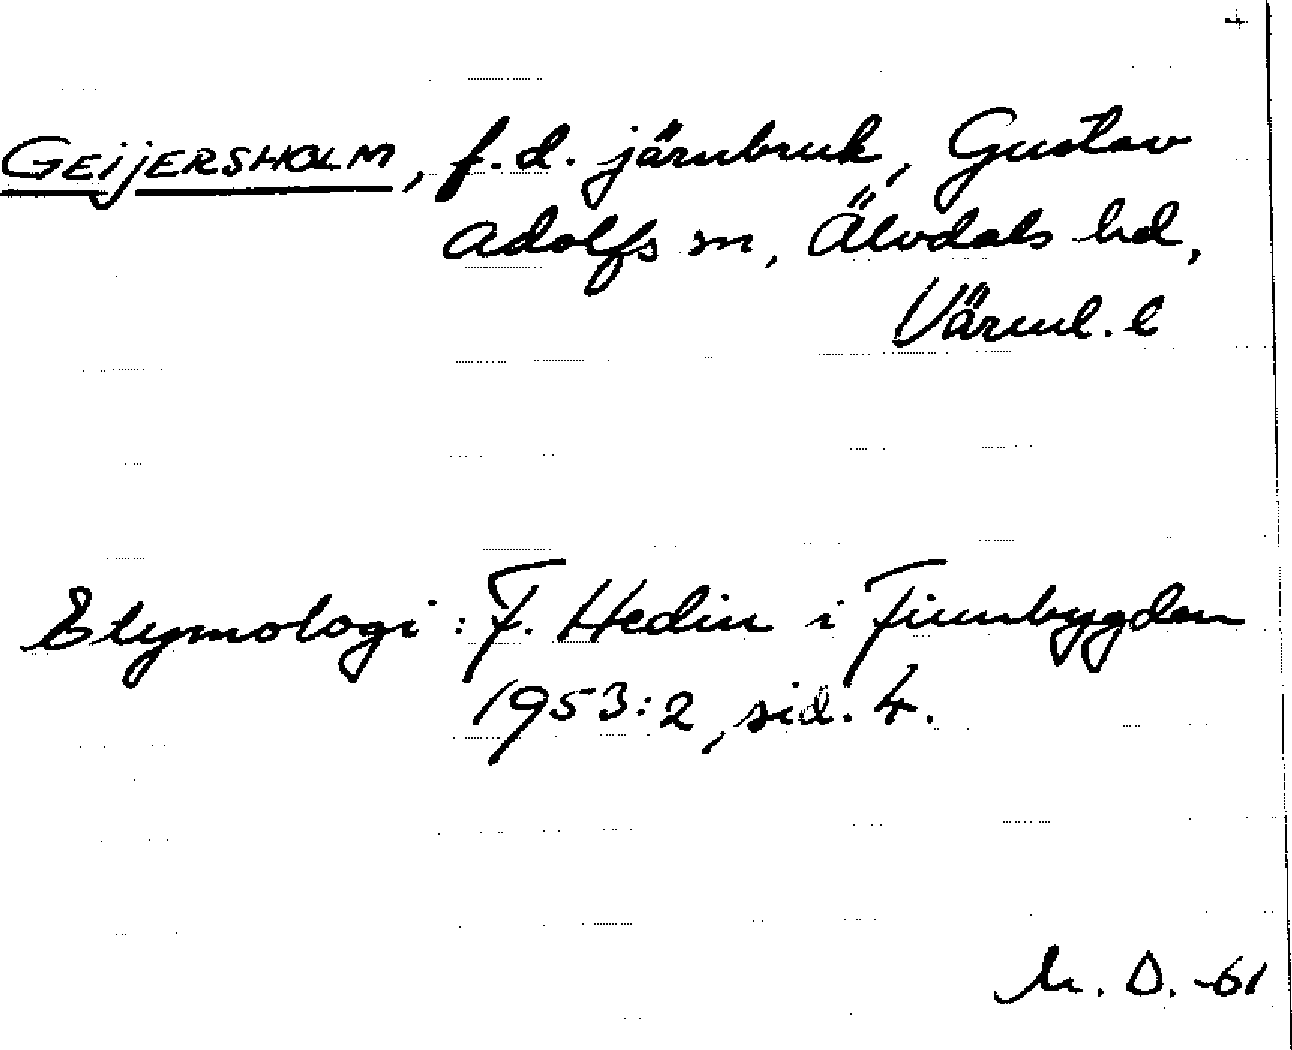 GEIJERSHOLM, f.d. järnbruk, Gustav
Adolfs sn, Älvdals hd,
Värml. l
Etymologi: F. Hedin i Finnbygden
1953:2, sid. 4.
D. -61